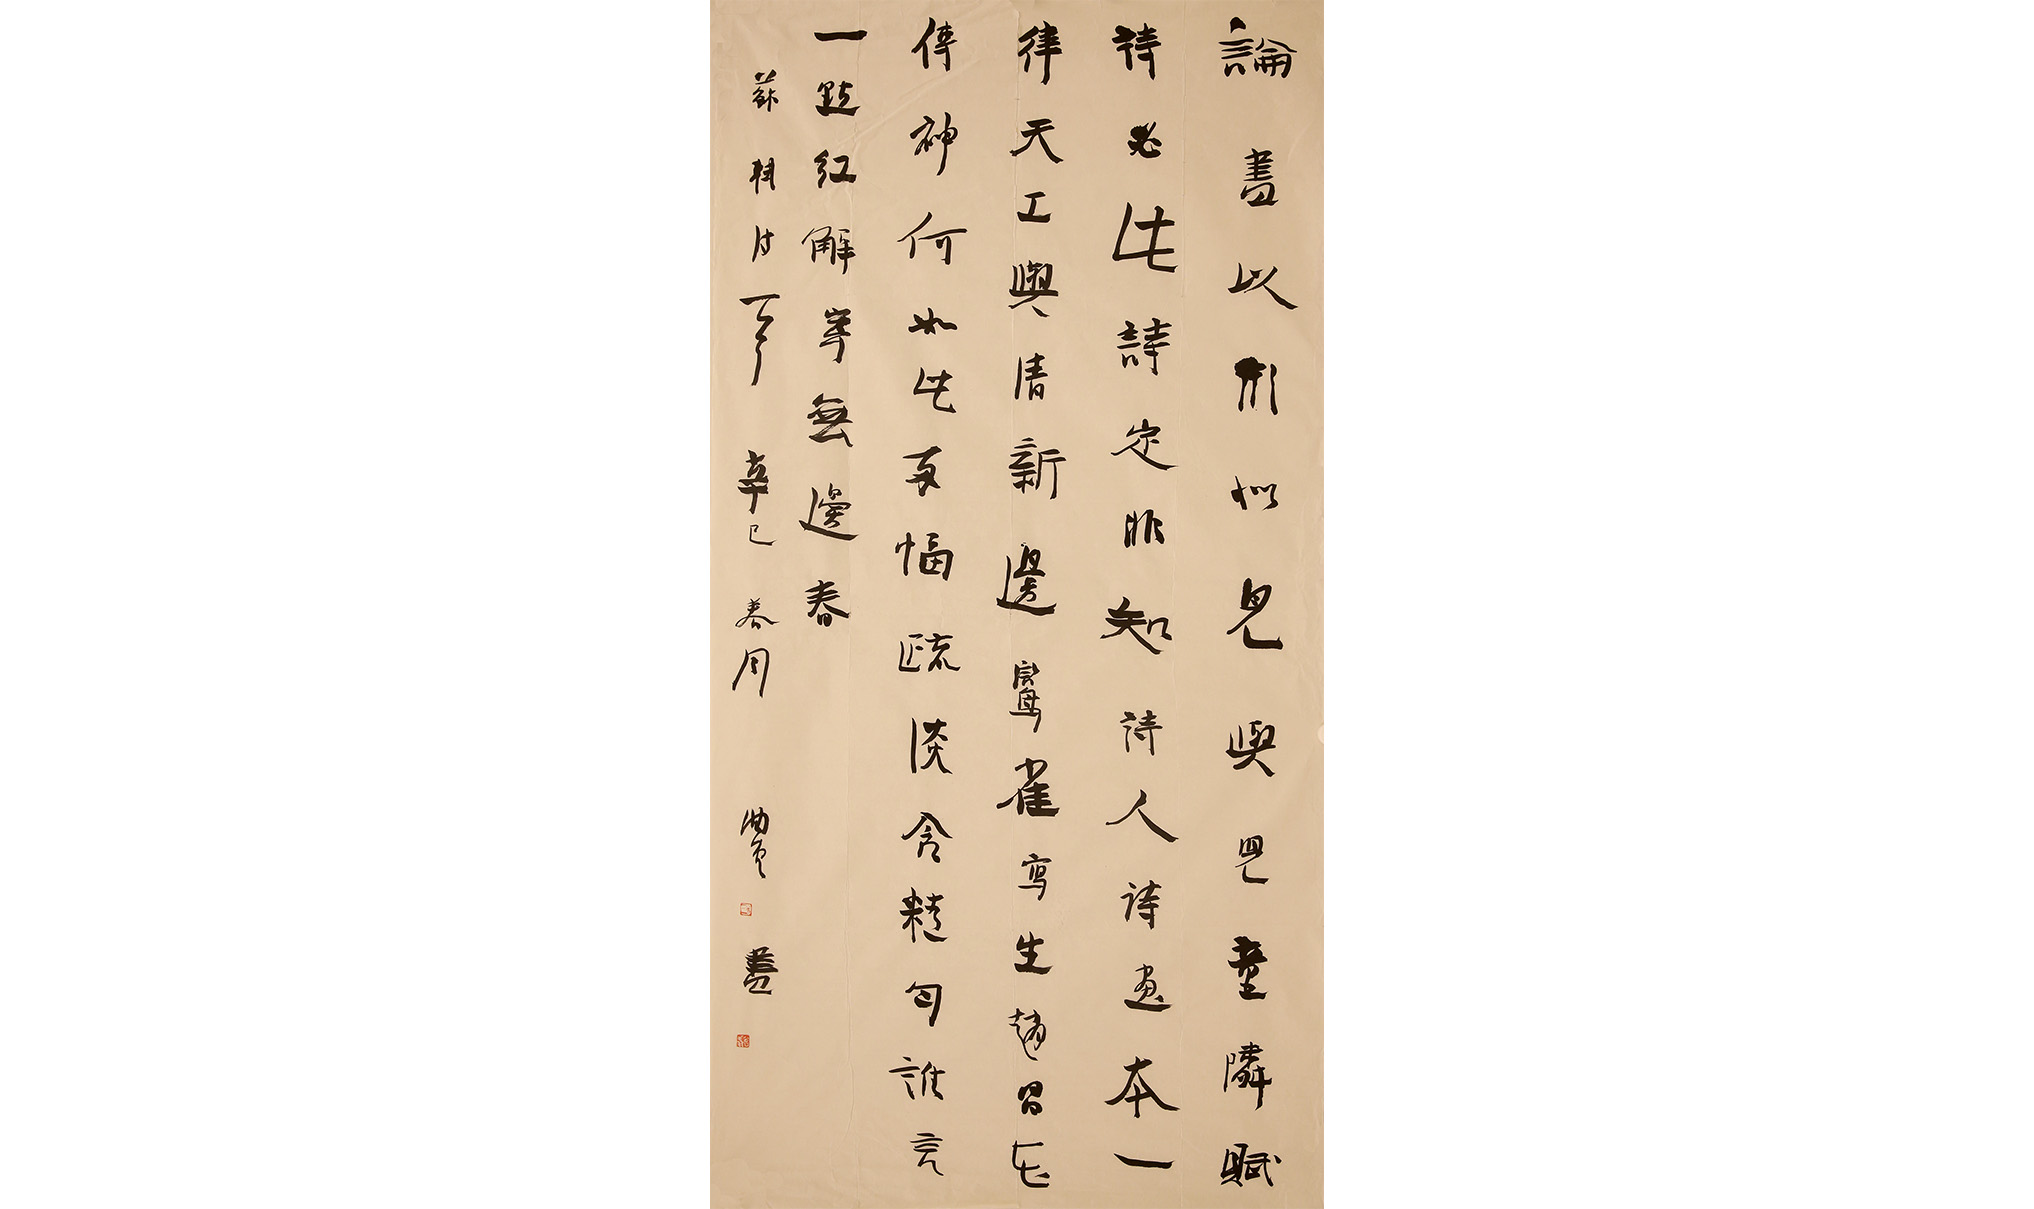 論畫以形似見與兒童隣賦
詩必此詩定非知詩人詩画本一
律天工與清新邊鸞雀写生趙昌花
傳神何如此兩幅疏淡含精勻誰言
一點紅解寄無邊春
蘇軾詩一首 辛巳春月 書